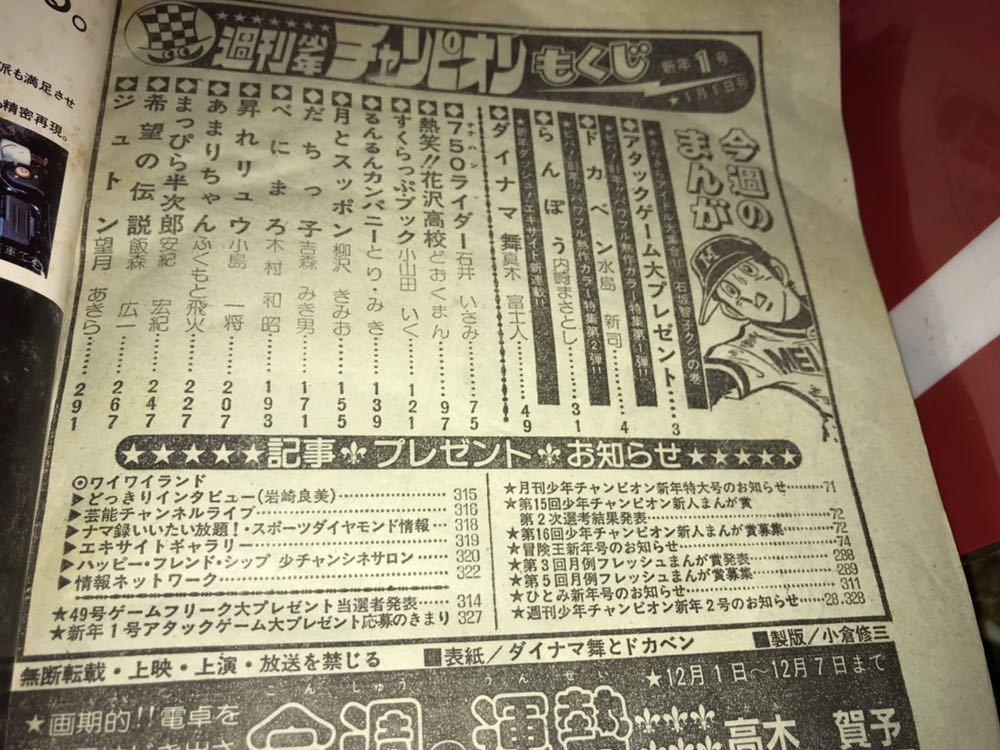 派も満足させ
も精密再現。
週刊少年チャンピオンもくじ
新年1号
★1月1日号
今週のまんが
アイドル大集合!!石坂智子クンの巻
◆アタックゲーム大プレゼント……3
★ビバ!'81年!!パワフル熱作カラー特集第1弾!!
◆ドカベン 水島 新司……4
★ビバ!'81年!!パワフル熱作カラー特集第2弾!!
◆らんぽう 内崎まさとし……31
★新年ダッシュ!エキサイト新連載!!
◆ダイナマ舞 真木 富士人……49
◆750ライダー 石井 いさみ……75
ナナハン
◆熱笑!!花沢高校 どおくまん……97
◆すくらっぷブック 小山田 いく……121
◆るんるんカンパニー とり・みき……139
◆月とスッポン 柳沢 きみお……155
◆だちっ子 吉森 みき男……171
◆べにまろ 木村 和昭……193
◆昇れリュウ 小島 一将……207
◆あまりちゃん ふくもと飛火……227
◆まっぴら半次郎 安紀 宏紀……247
◆希望の伝説 飯森 広一……267
◆ジュトン 望月 あきら……291
★★★★★記事⚜プレゼント⚜お知らせ★★★★★
◎ワイワイランド
▶どっきりインタビュー(岩崎良美)……315
▶芸能チャンネルライブ……316
▶ナマ録いいたい放題!・スポーツダイヤモンド情報……318
▶エキサイトギャラリー……319
▶ハッピー・フレンド・シップ 少チャンシネサロン……320
▶情報ネットワーク……322
★49号ゲームフリーク大プレゼント当選者発表……314
★新年1号アタックゲーム大プレゼント応募のきまり 327
★月刊少年チャンピオン新年特大号のお知らせ……71
★第15回少年チャンピオン新人まんが賞
第2次選考結果発表……72
★第16回少年チャンピオン新人まんが賞募集……72
★冒険王新年号のお知らせ……74
★第3回月例フレッシュまんが賞発表……288
★第5回月例フレッシュまんが賞募集……289
★ひとみ新年号のお知らせ……311
★週刊少年チャンピオン新年2号のお知らせ……28.328
無断転載・上映・上演・放送を禁じる
■表紙/ダイナマ舞とドカベン
■製版/小倉修三
★12月1日~12月7日まで
★画期的!!電卓を
こんしゅう うんせい
今週の運勢
高木 賀予